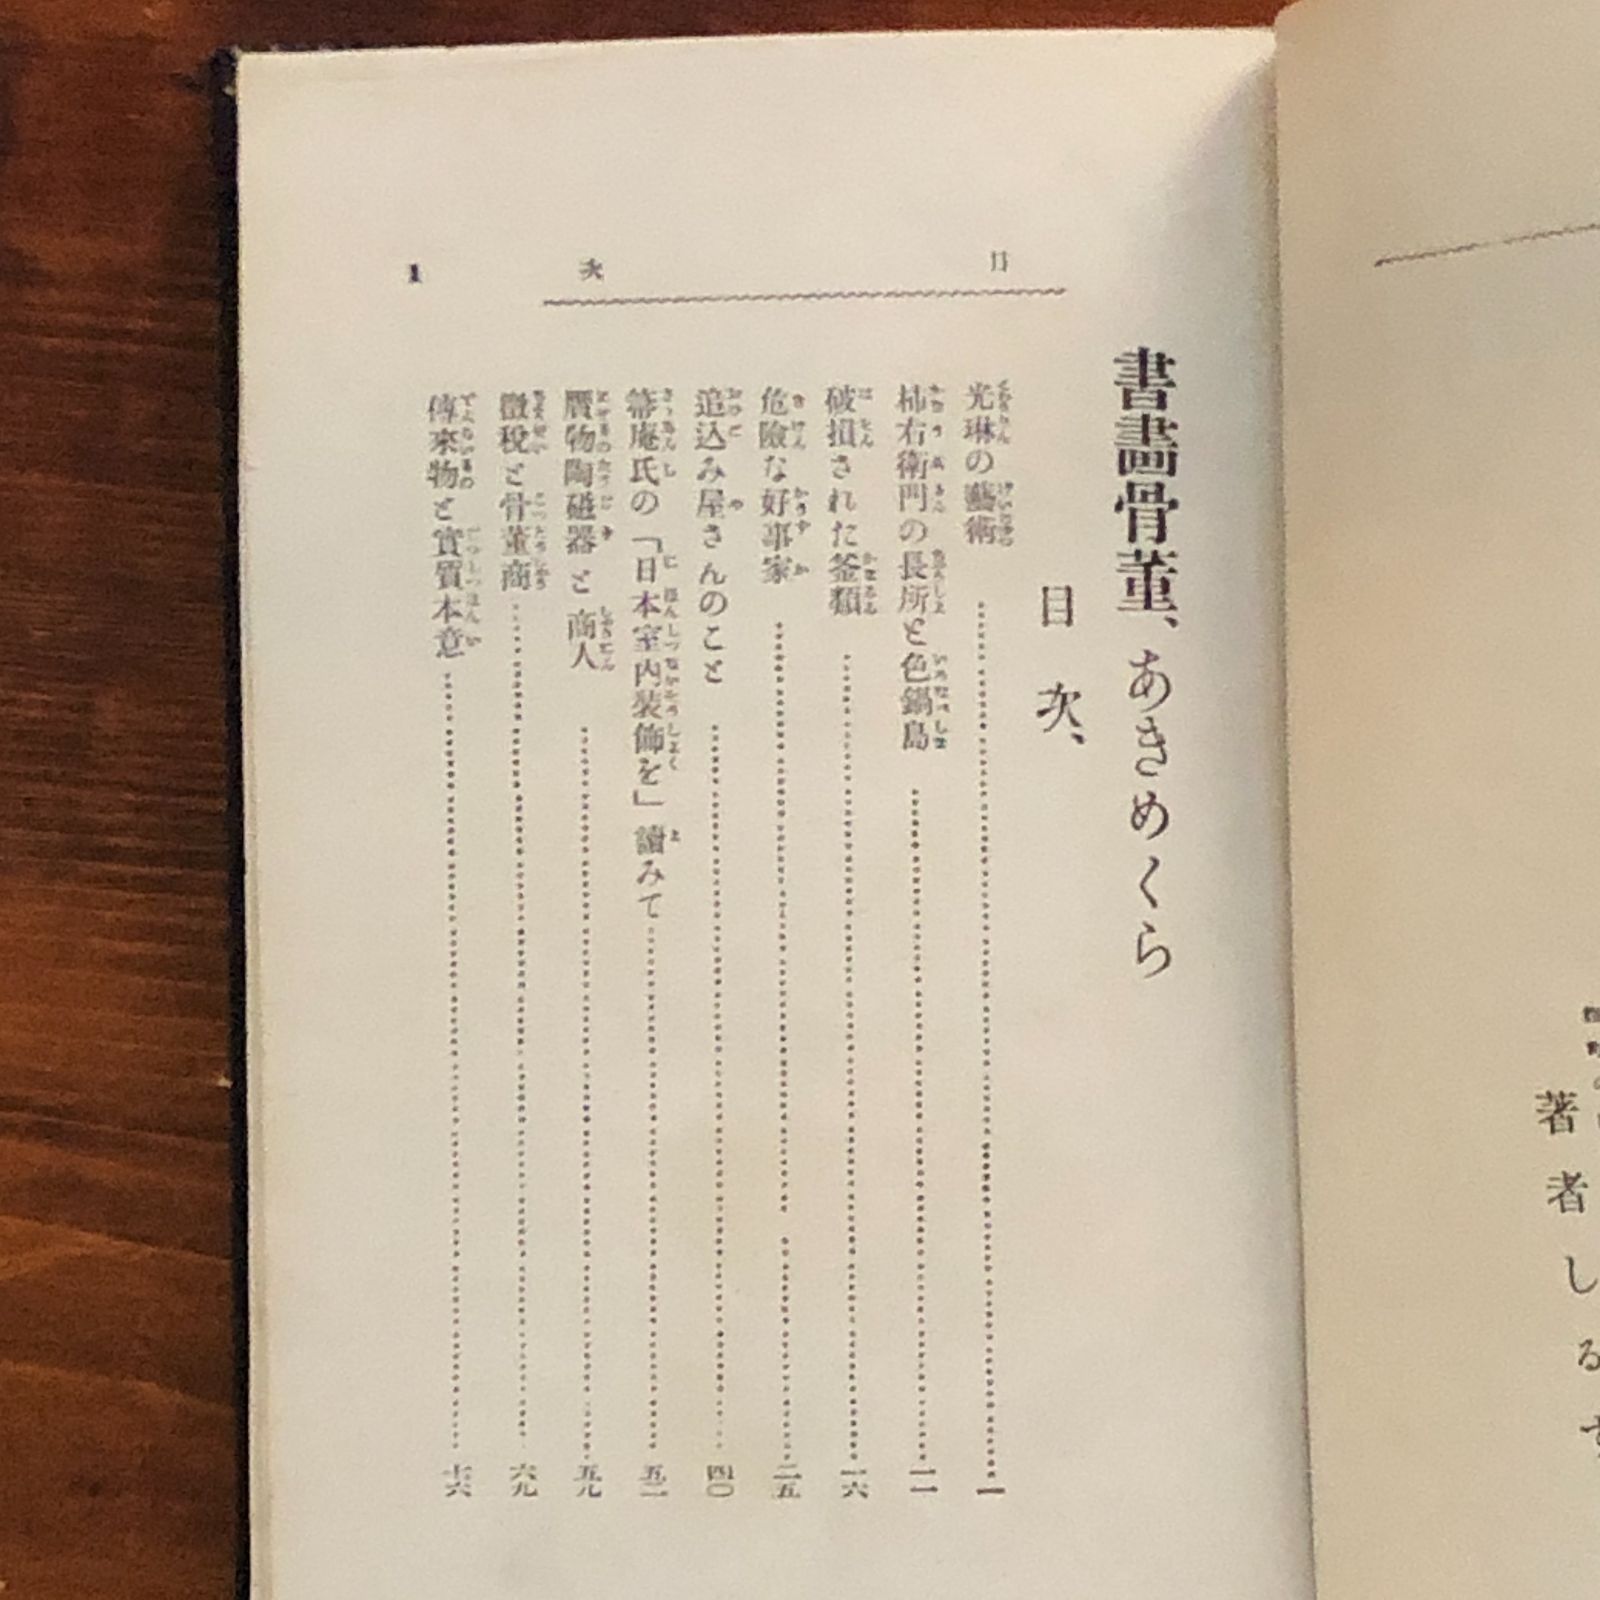 著者しるす
書畵骨董、あきめくら
目次、
目次
1
光琳の藝術 一
柿右衛門の長所と色鍋島 一一
破損された釜類 一六
危險な好事家 二五
追込み屋さんのこと 四〇
箒庵氏の「日本室内裝飾を」讀みて 五二
贋物陶磁器と商人 五九
徴稅と骨董商 六九
傳來物と實質本意 七六